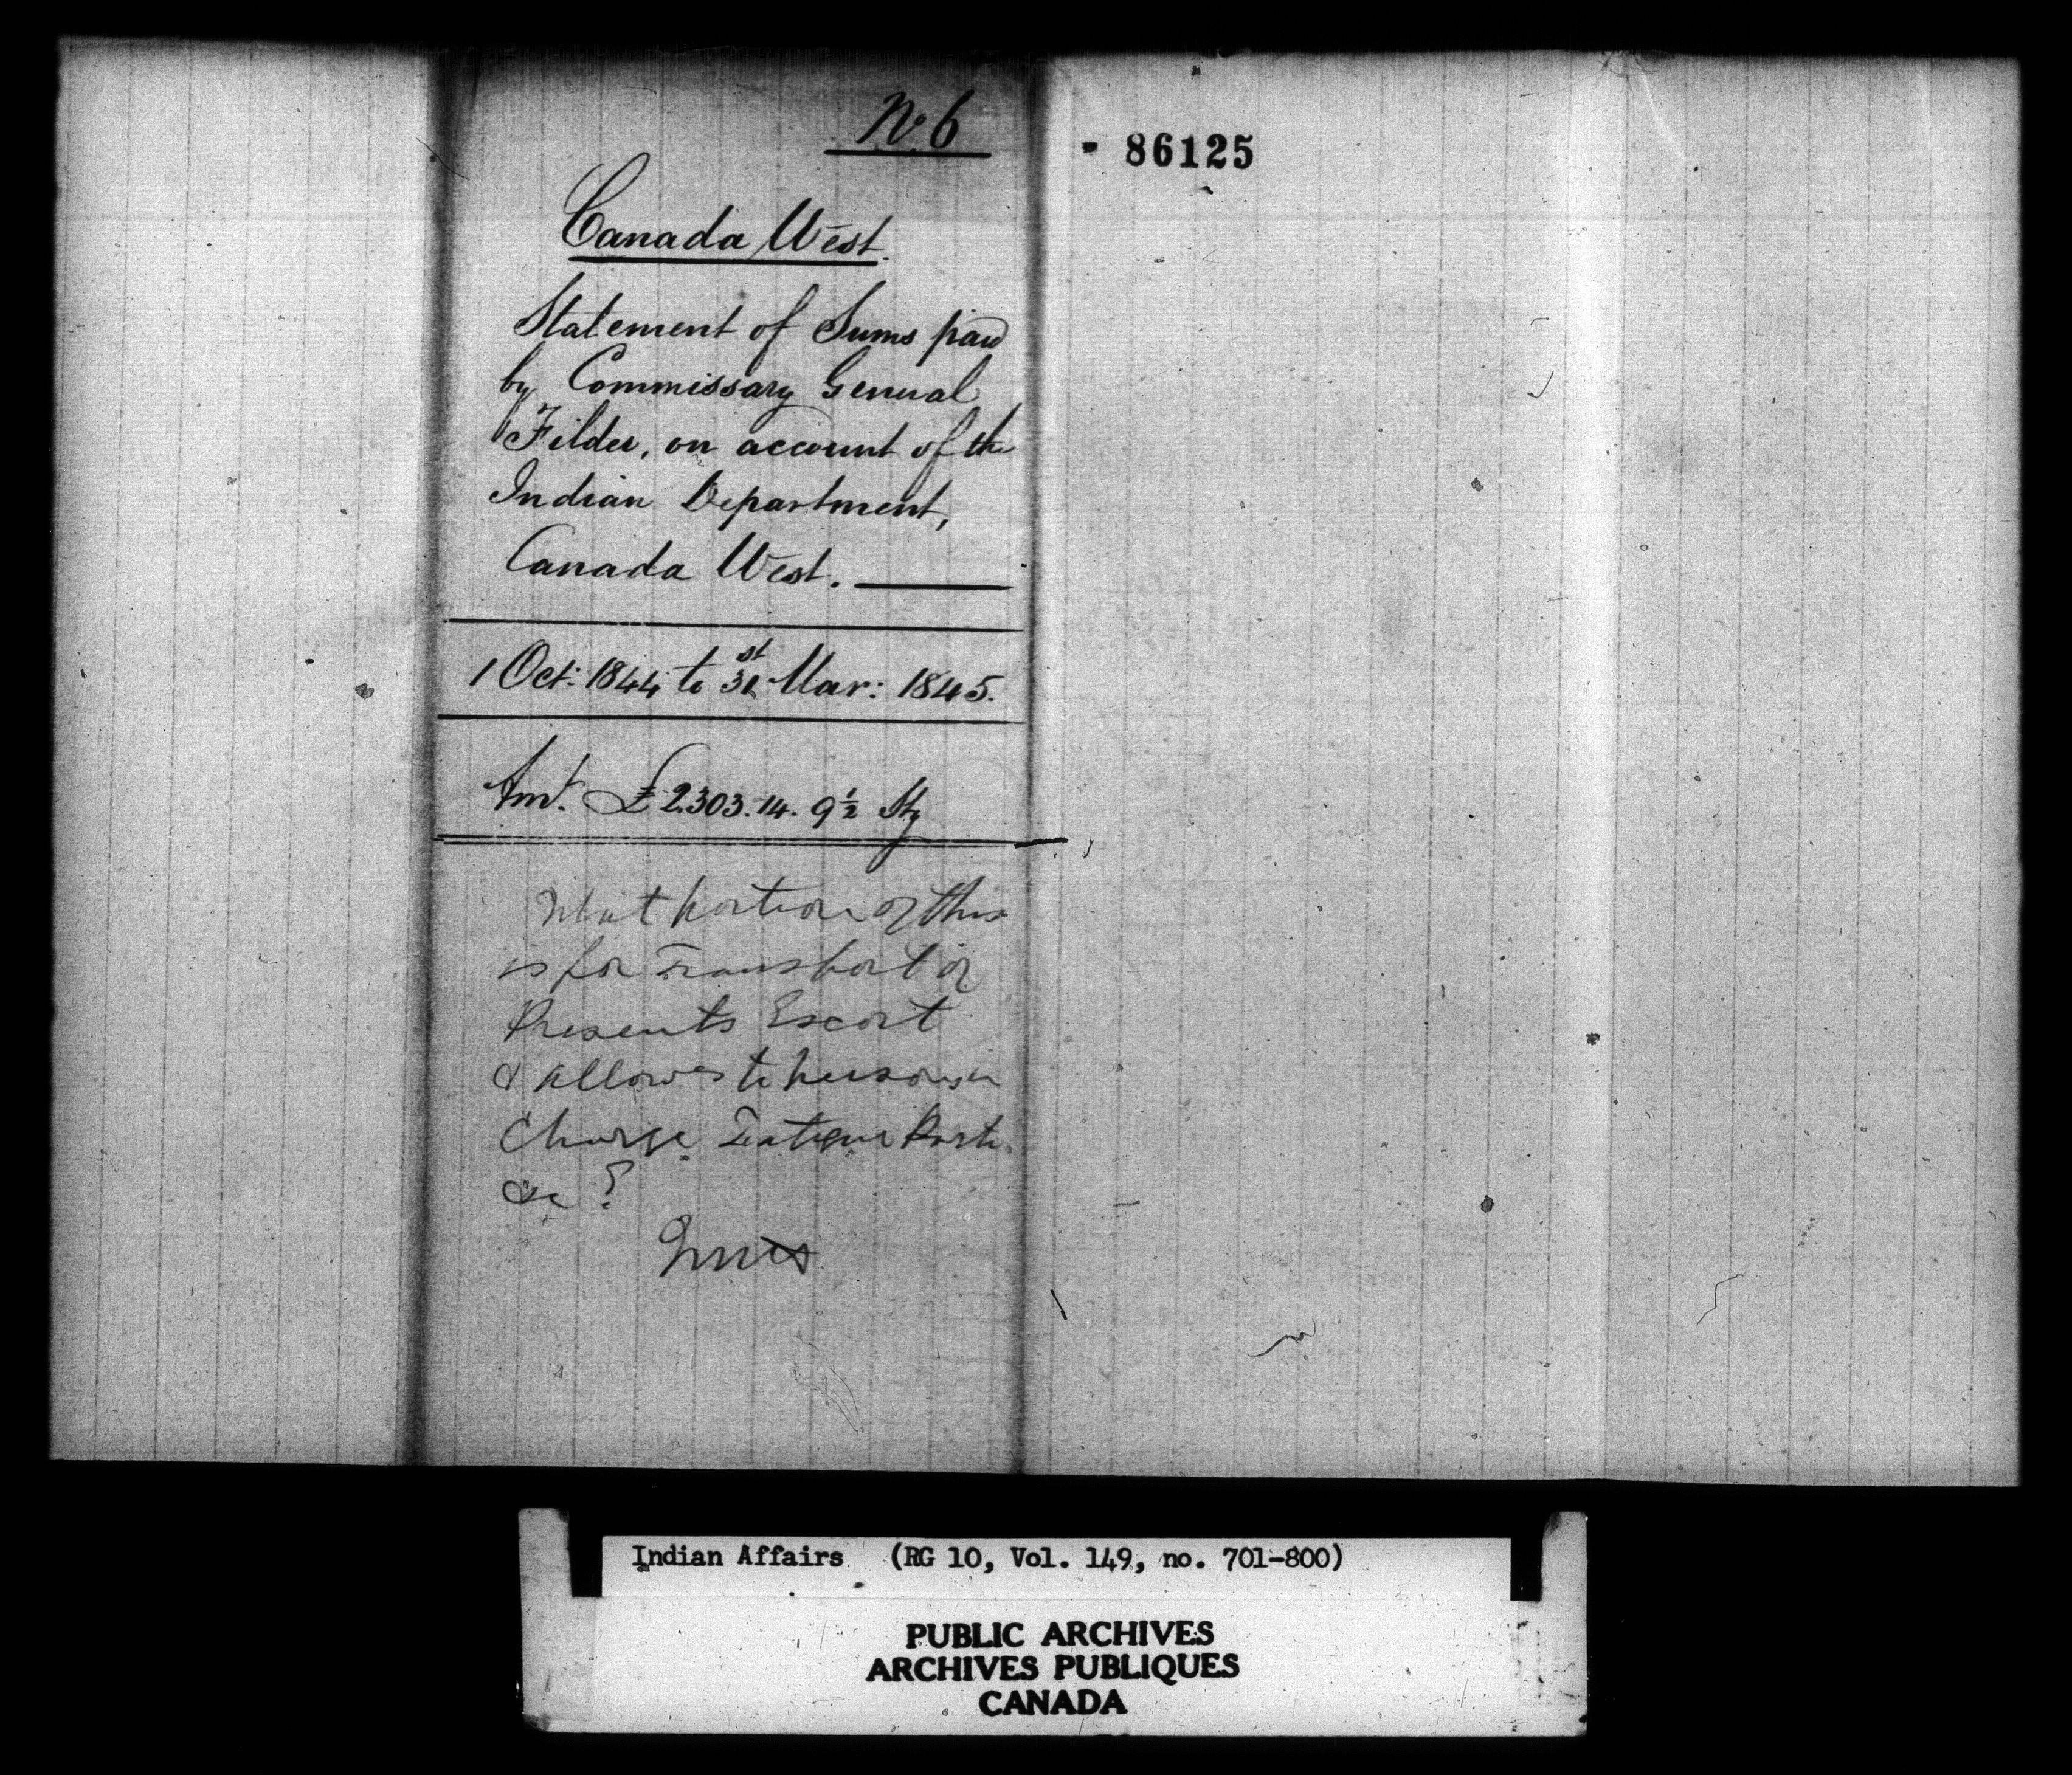 No. 6
86125
Canada West.
Statement of Sums paid
by Commissary General
Filder, on account of the
Indian Department,
Canada West.
1 Oct: 1844 to 31st Mar: 1845.
Amt. £2303.14.9½ Stg
What portion of this
is for Transport of
Presents Escort
& allowes to persons in
Charge Fatigue Parties
&c ?
Indian Affairs (RG 10, Vol. 149, no. 701-800)
PUBLIC ARCHIVES
ARCHIVES PUBLIQUES
CANADA